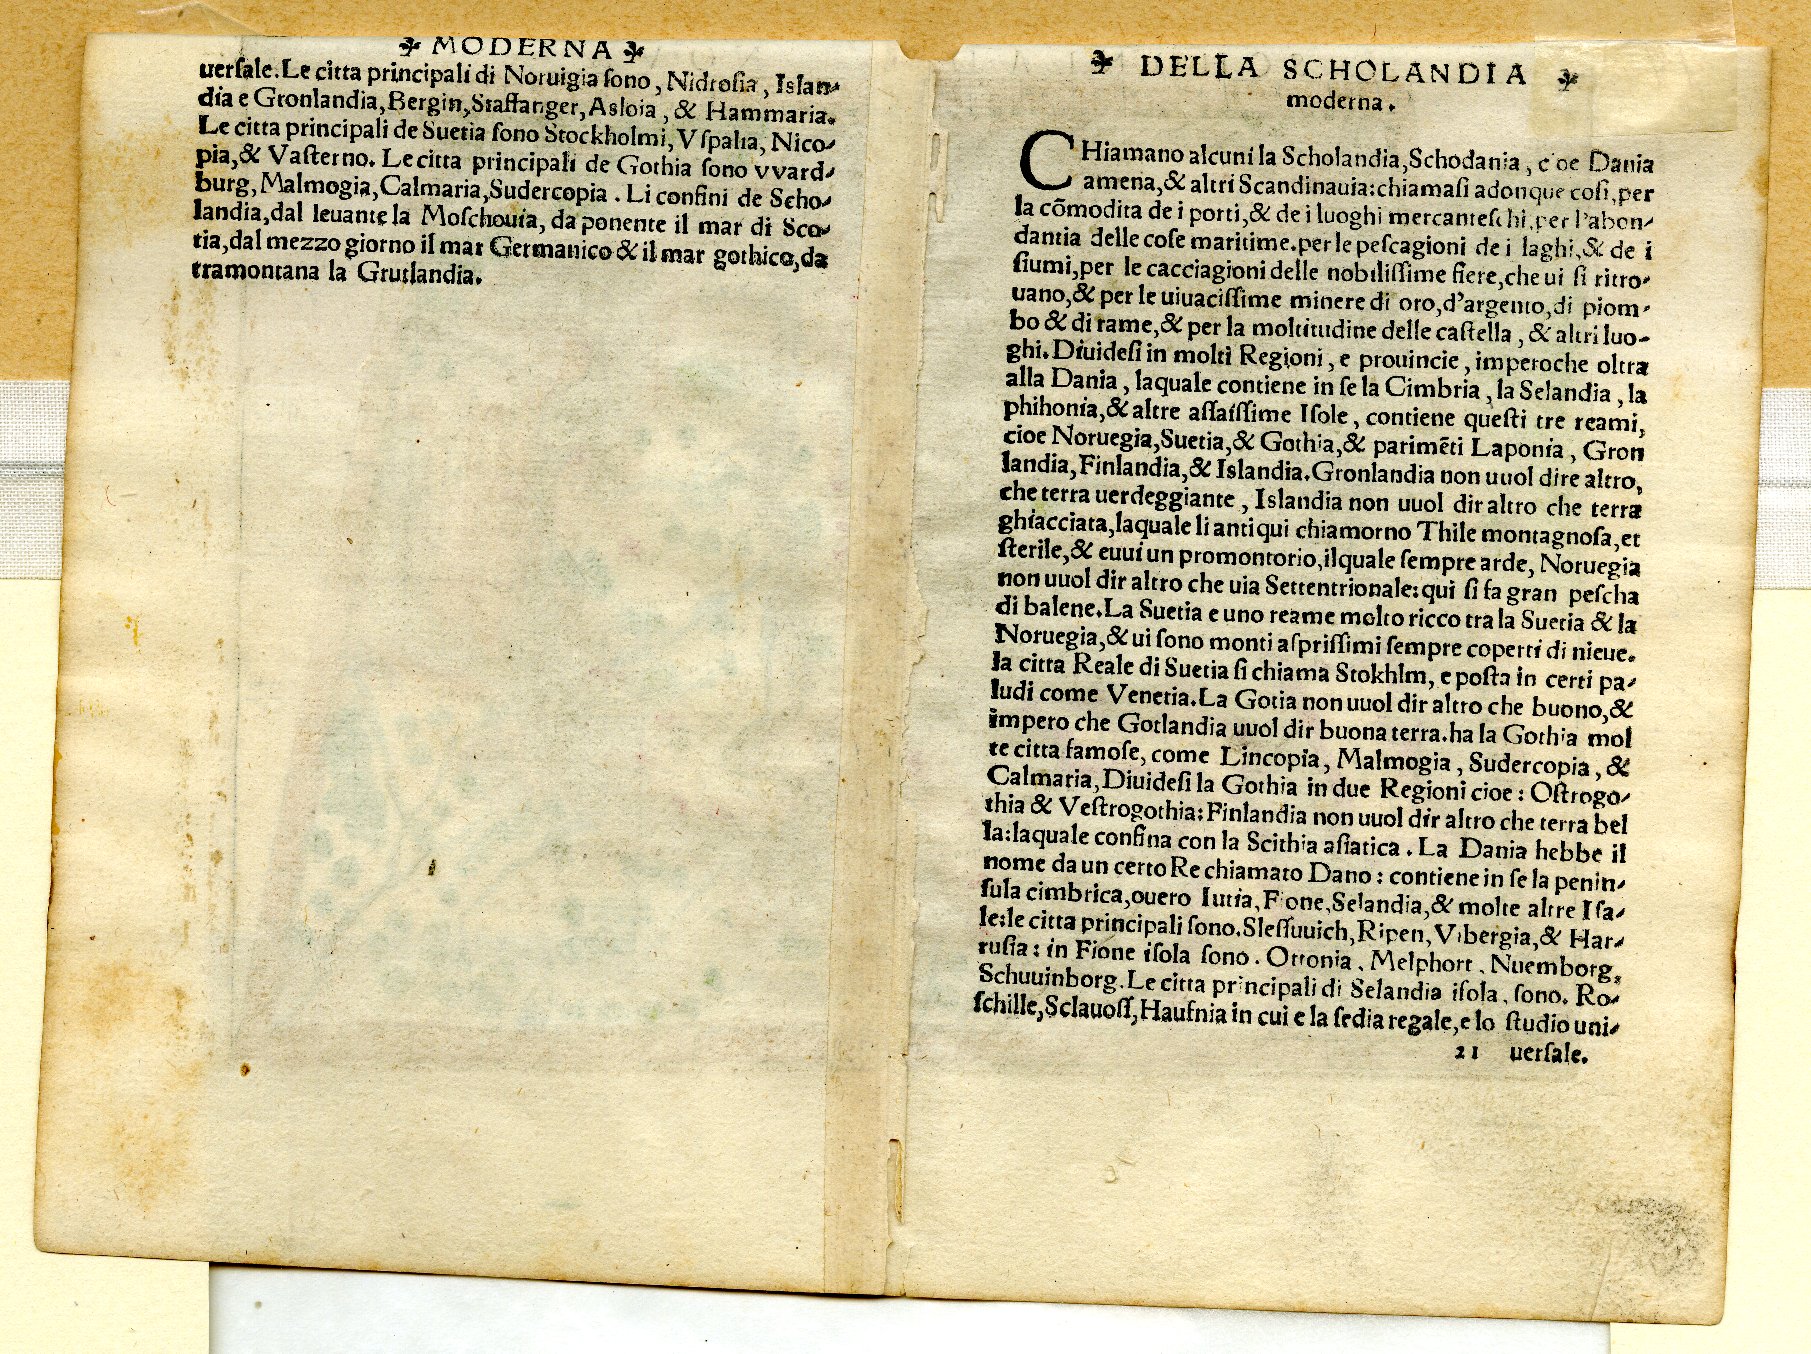 MODERNA
uerſale. Le citta principali di Noruigia ſono, Nidroſia, Iſlan-
dia e Gronlandia, Bergin, Staffanger, Asloia, & Hammaria.
Le citta principali de Suetia ſono Stockholmi, Vſpalia, Nico-
pia, & Vaſterno. Le citta principali de Gothia ſono vvard-
burg, Malmogia, Calmaria, Sudercopia. Li confini de Scho-
landia, dal leuante la Moſchouia, da ponente il mar di Sco-
tia, dal mezzo giorno il mar Germanico & il mar gothico, da
tramontana la Grutlandia.
DELLA SCHOLANDIA
moderna.
CHiamano alcuni la Scholandia, Schodania, cioe Dania
amena, & altri Scandinauia: chiamaſi adonque coſi, per
la cõmodita de i porti, & de i luoghi mercanteſchi, per l'abon-
dantia delle coſe maritime. per le peſcagioni de i laghi, & de i
fiumi, per le cacciagioni delle nobiliſſime fiere, che ui ſi ritro-
uano, & per le uiuaciſſime minere di oro, d'argento, di piom-
bo & di rame, & per la moltitudine delle caſtella, & altri luo-
ghi. Diuideſi in molti Regioni, e prouincie, imperoche oltra
alla Dania, laquale contiene in ſe la Cimbria, la Selandia, la
phihonia, & altre aſſaiſſime Iſole, contiene queſti tre reami,
cioe Noruegia, Suetia, & Gothia, & parimẽti Laponia, Gron
landia, Finlandia, & Islandia. Gronlandia non uuol dire altro,
che terra uerdeggiante, Islandia non uuol dir altro che terra
ghiacciata, laquale li antiqui chiamorno Thile montagnoſa, et
ſterile, & euui un promontorio, ilquale ſempre arde, Noruegia
non uuol dir altro che uia Settentrionale: qui ſi fa gran peſcha
di balene. La Suetia e uno reame molto ricco tra la Suetia & la
Noruegia, & ui ſono monti aſpriſſimi ſempre coperti di nieue.
la citta Reale di Suetia ſi chiama Stokhlm, e poſta in certi pa-
ludi come Venetia. La Gotia non uuol dir altro che buono, &
impero che Gotlandia uuol dir buona terra. ha la Gothia mol
te citta famoſe, come Lincopia, Malmogia, Sudercopia, &
Calmaria, Diuideſi la Gothia in due Regioni cioe: Oſtrogo-
thia & Veſtrogothia: Finlandia non uuol dir altro che terra bel
la: laquale confina con la Scithia aſiatica. La Dania hebbe il
nome da un certo Re chiamato Dano: contiene in ſe la penin-
ſula cimbrica, ouero Iutia, Fione, Selandia, & molte altre Iſa-
le: le citta principali ſono. Sleſſuuich, Ripen, Vibergia, & Har-
tuſia: in Fione iſola ſono. Ottonia, Melphort, Nuemborg,
Schuuinborg. Le citta principali di Selandia iſola, ſono. Ro-
ſchille, Sclauoſſ, Haufnia in cui e la ſedia regale, e lo ſtudio uni-
21 uerſale.